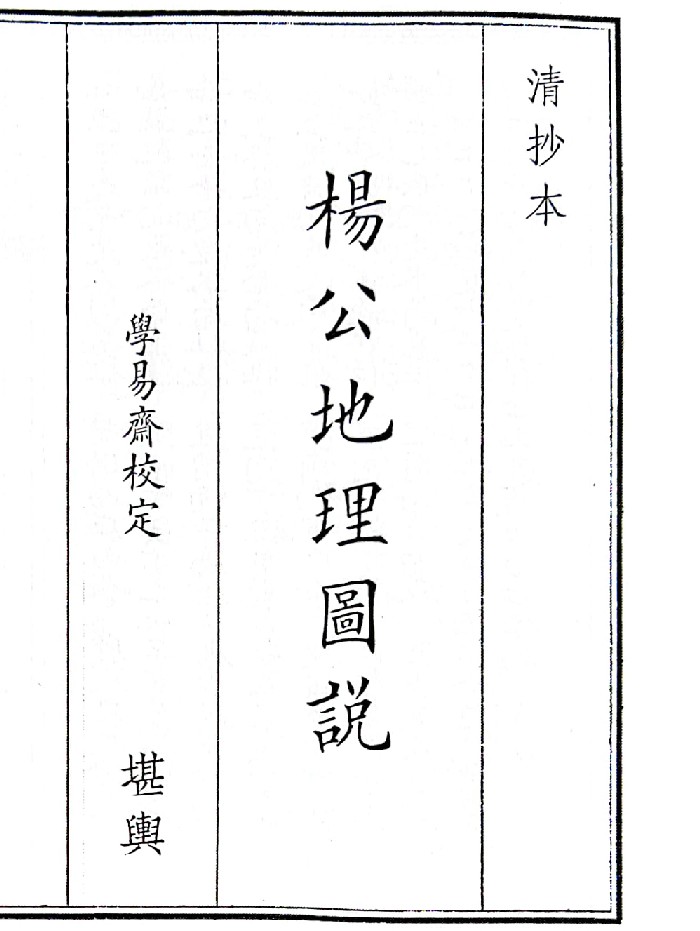 清抄本
楊公地理圖説
學易齋校定
堪輿